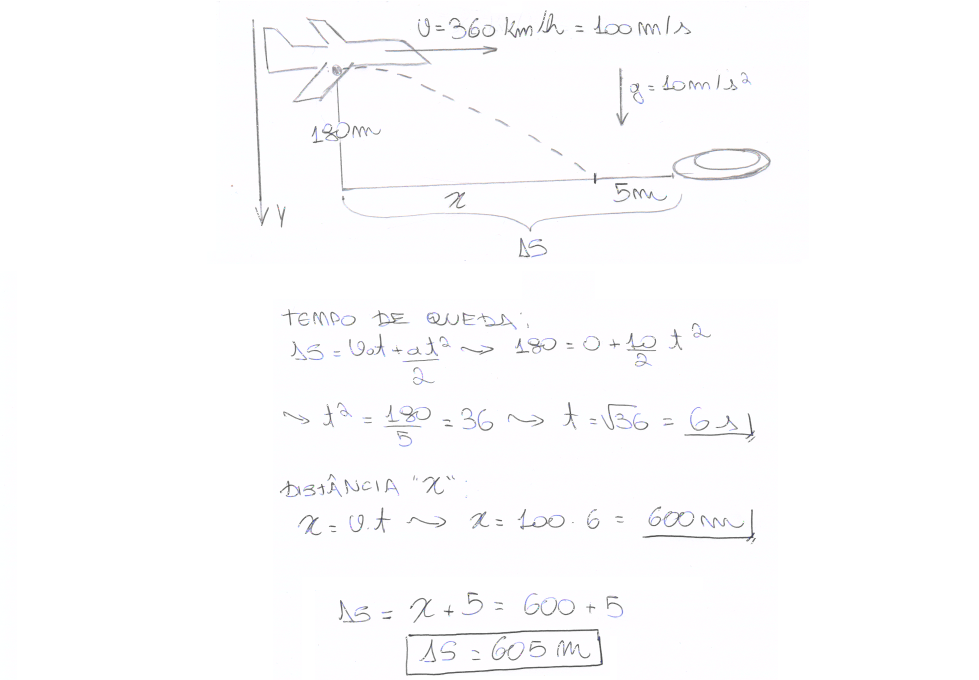 V=360 Km/h = 100 m/s
g=10m/s²
180m
x
5m
Y
ΔS
TEMPO DE QUEDA:
ΔS = V₀t + at²/2 ~> 180 = 0 + 10/2 t²
~> t² = 180/5 = 36 ~> t = √36 = 6 s
DISTÂNCIA "X":
x = V.t ~> x = 100 . 6 = 600m
ΔS = x + 5 = 600 + 5
ΔS = 605 m